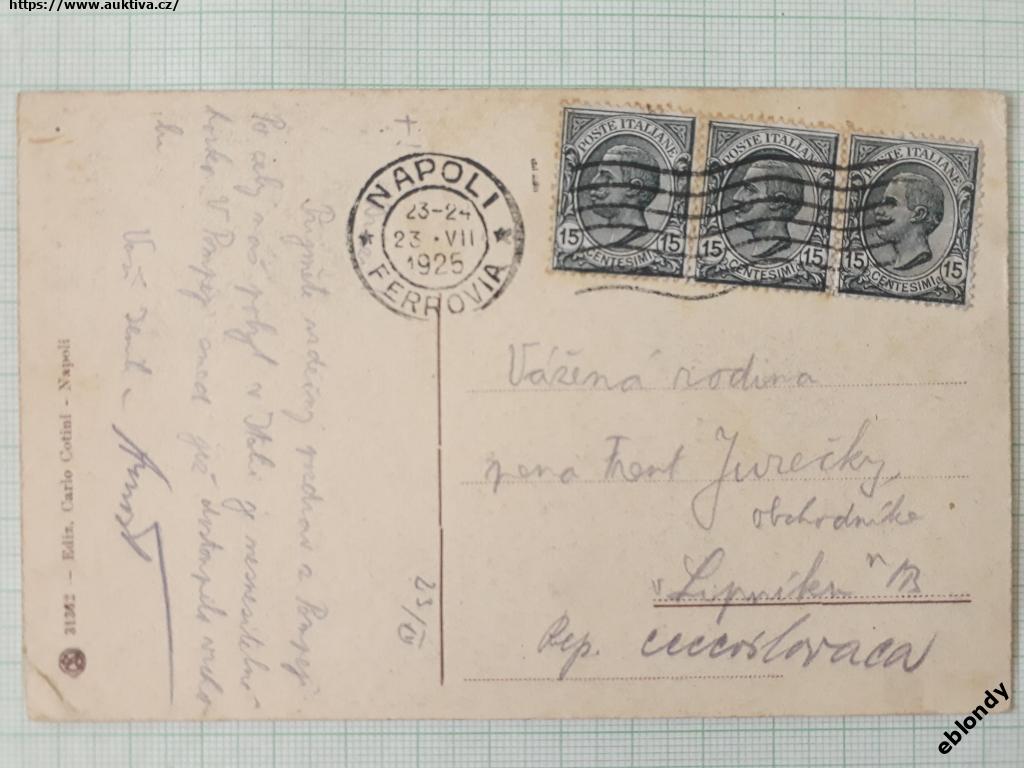 https://www.auktiva.cz/
NAPOLI
23-24
23 · VII
1925
FERROVIA
POSTE ITALIANE
15 15
CENTESIMI
POSTE ITALIANE
15 15
CENTESIMI
POSTE ITALIANE
15 15
CENTESIMI
Přijměte srdečný pozdrav z Pompejí
Po celý náš pobyt v Itálii je nesnesitelné
horko. V Pompeji
Váš
23/
31362 - Ediz. Carlo Cotini - Napoli
Vážená rodina
pana Frant Jurečky
obchodníka
v Lipníku n/B
Rep. cecoslovaca
eblondy